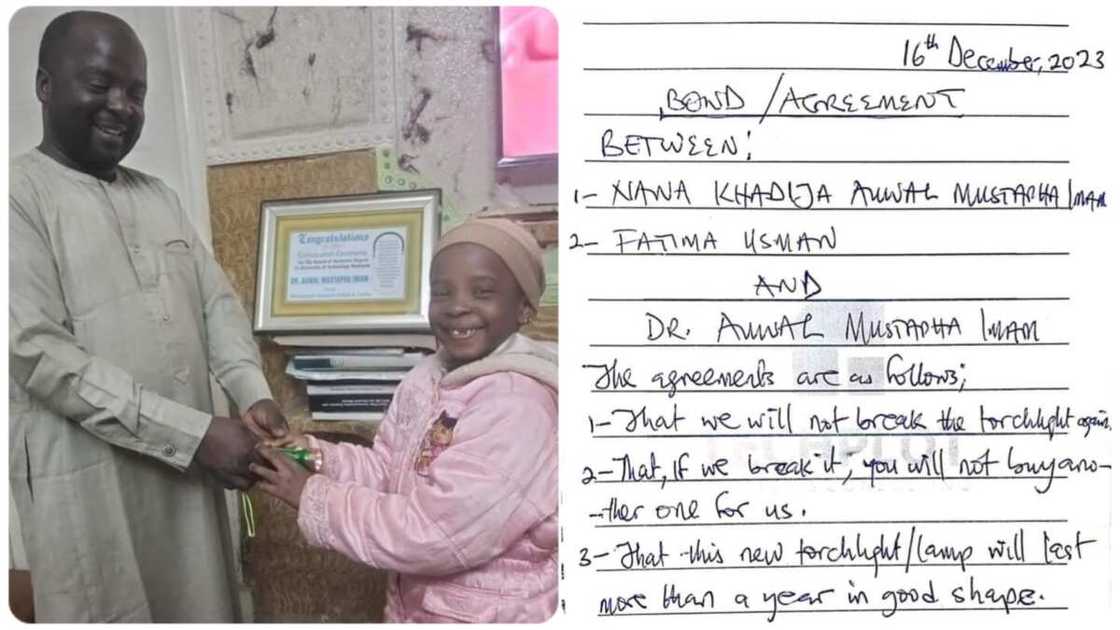 Congratulations
DR. AUWAL MUSTAPHA IMAM
16th December, 2023
BOND / AGREEMENT
BETWEEN:
1- NANA KHADIJA AUWAL MUSTAPHA IMAM
2- FATIMA USMAN
AND
DR. AUWAL MUSTAPHA IMAM
The agreements are as follows;
1- That we will not break the torchlight again.
2- That, If we break it, you will not buy ano-
-ther one for us.
3- That this new torchlight/lamp will last
more than a year in good shape.